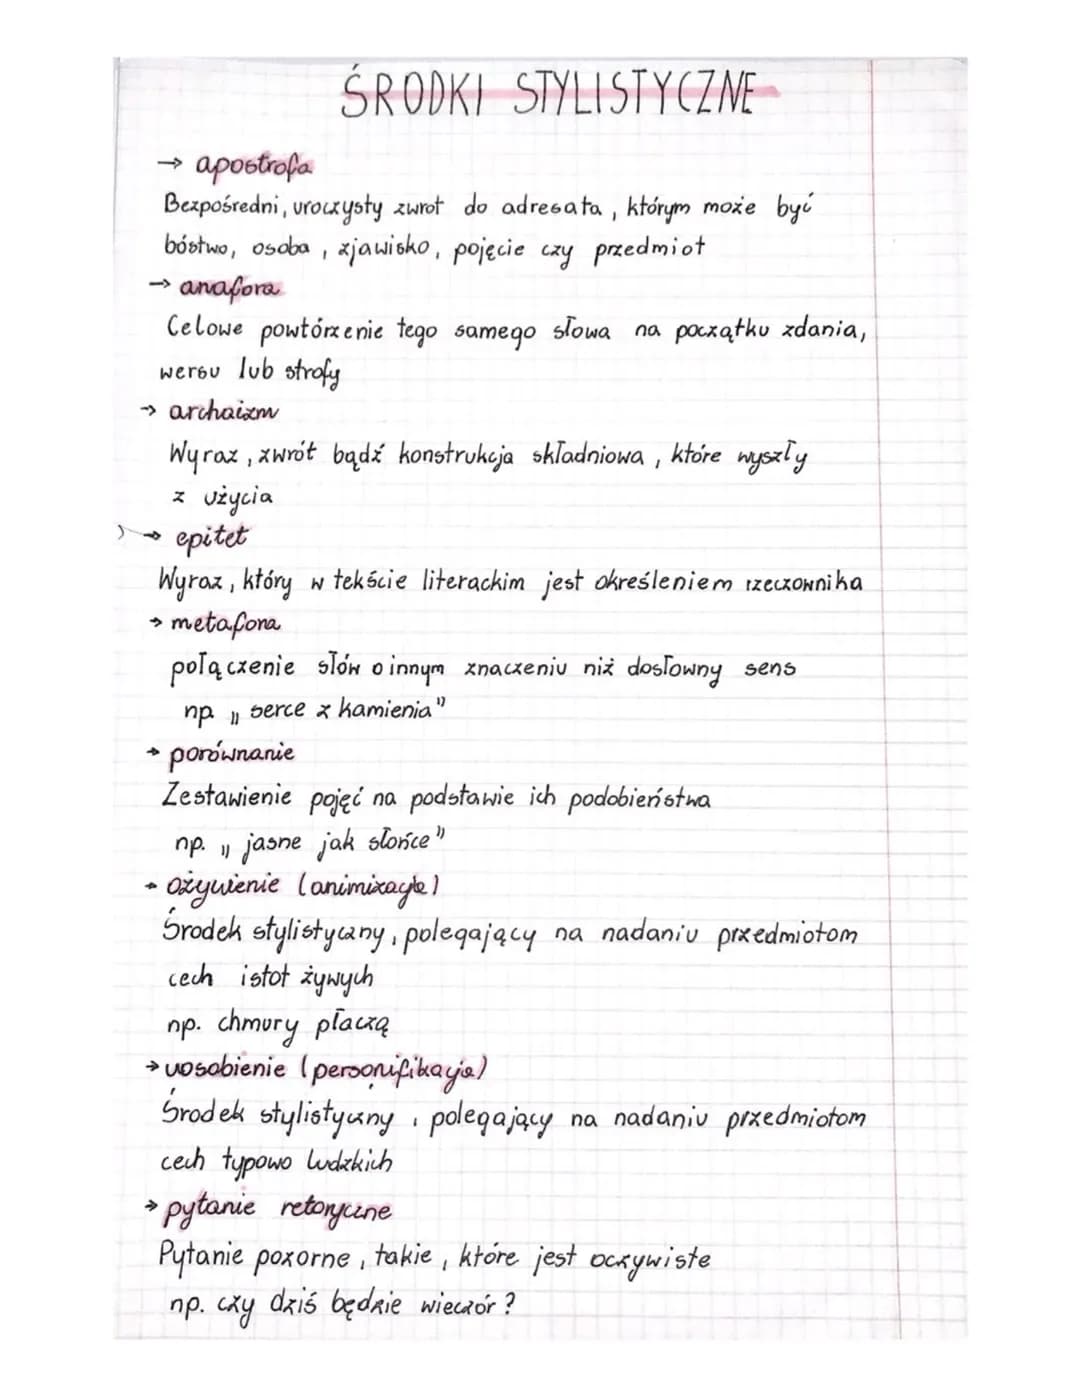 ŚRODKI STYLISTYCZNE
→ apostrofa
Bezpośredni, uroczysty zwrot do adresata, którym może być
bóstwo, osoba, zjawisko, pojęcie czy przedmiot
→ anafora
Celowe powtórzenie tego samego słowa na początku zdania,
wersu lub strofy
→ archaizm
Wyraz, zwrót bądź konstrukcja składniowa, które wyszły
z użycia
→ epitet
Wyraz, który w tekście literackim jest określeniem rzeczownika
→ metafora
połączenie słów o innym znaczeniu niż dosłowny sens
np. „serce z kamienia"
→ porównanie
Zestawienie pojęć na podstawie ich podobieństwa
np. „jasne jak słońce"
→ ożywienie (animizacja)
Środek stylistyczny, polegający na nadaniu przedmiotom
cech istot żywych
np. chmury płaczą
→ uosobienie (personifikacja)
Środek stylistyczny, polegający na nadaniu przedmiotom
cech typowo ludzkich
→ pytanie retoryczne
Pytanie pozorne, takie, które jest oczywiste
np. czy dziś będzie wieczór?